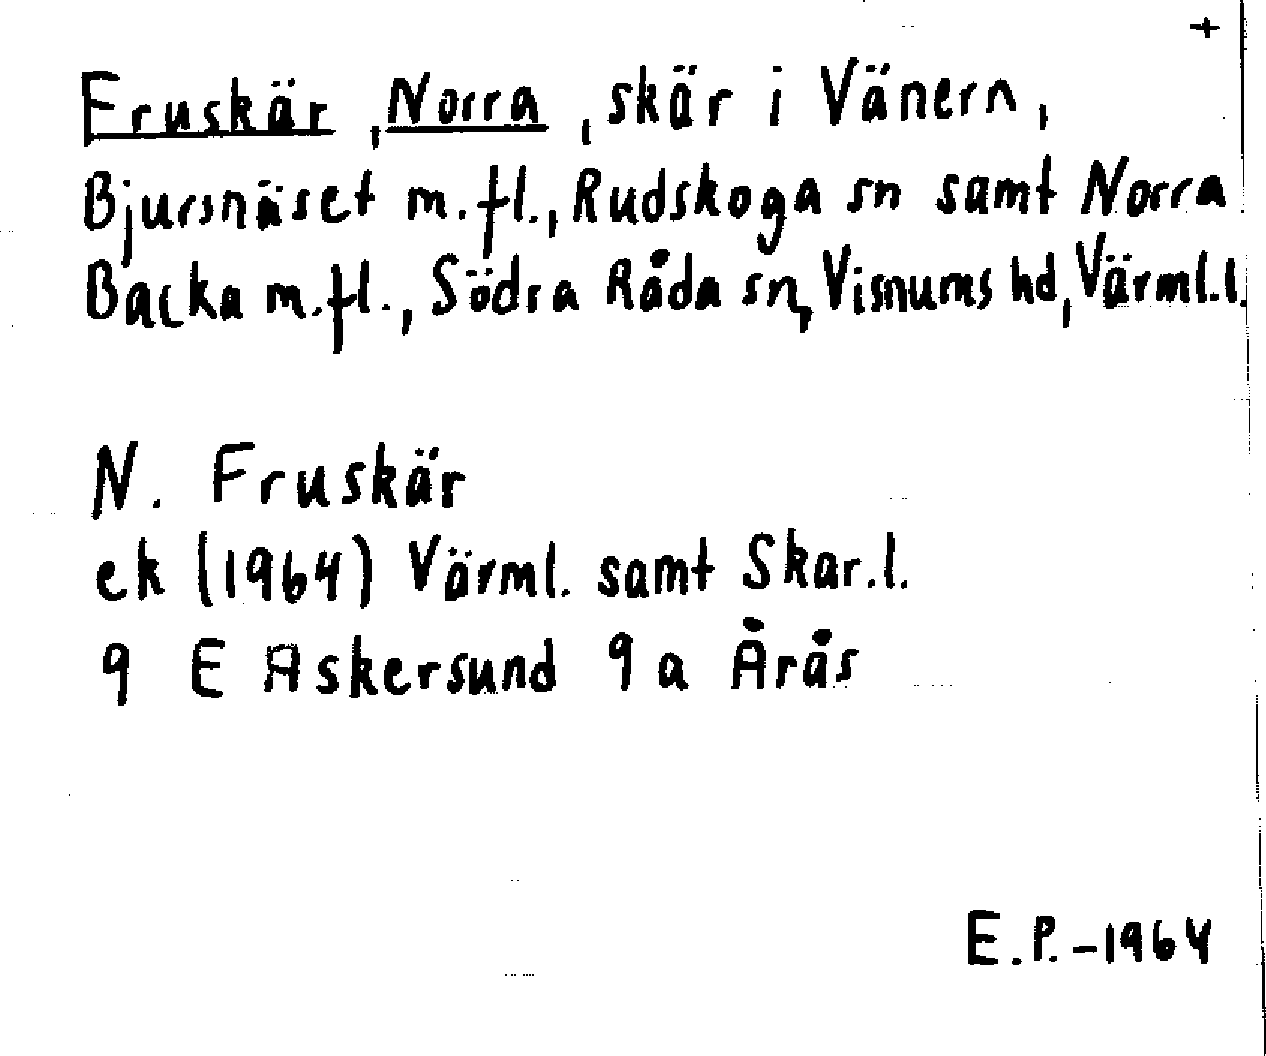 +
Fruskär, Norra, skär i Vänern,
Bjursnäset m.fl., Rudskoga sn samt Norra
Backa m.fl., Södra Råda sn, Visnums hd, Värml.l.
N. Fruskär
ek (1964) Värml. samt Skar.l.
9 E Askersund 9a Årås
E.P.-1964